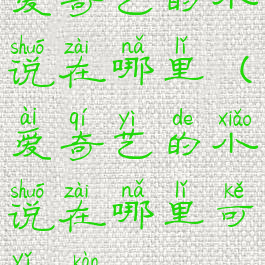 爱奇艺的小
shuō zài nǎ lǐ
说在哪里（
ài qí yì de xiǎo
爱奇艺的小
shuō zài nǎ lǐ kě
说在哪里可
yǐ kàn